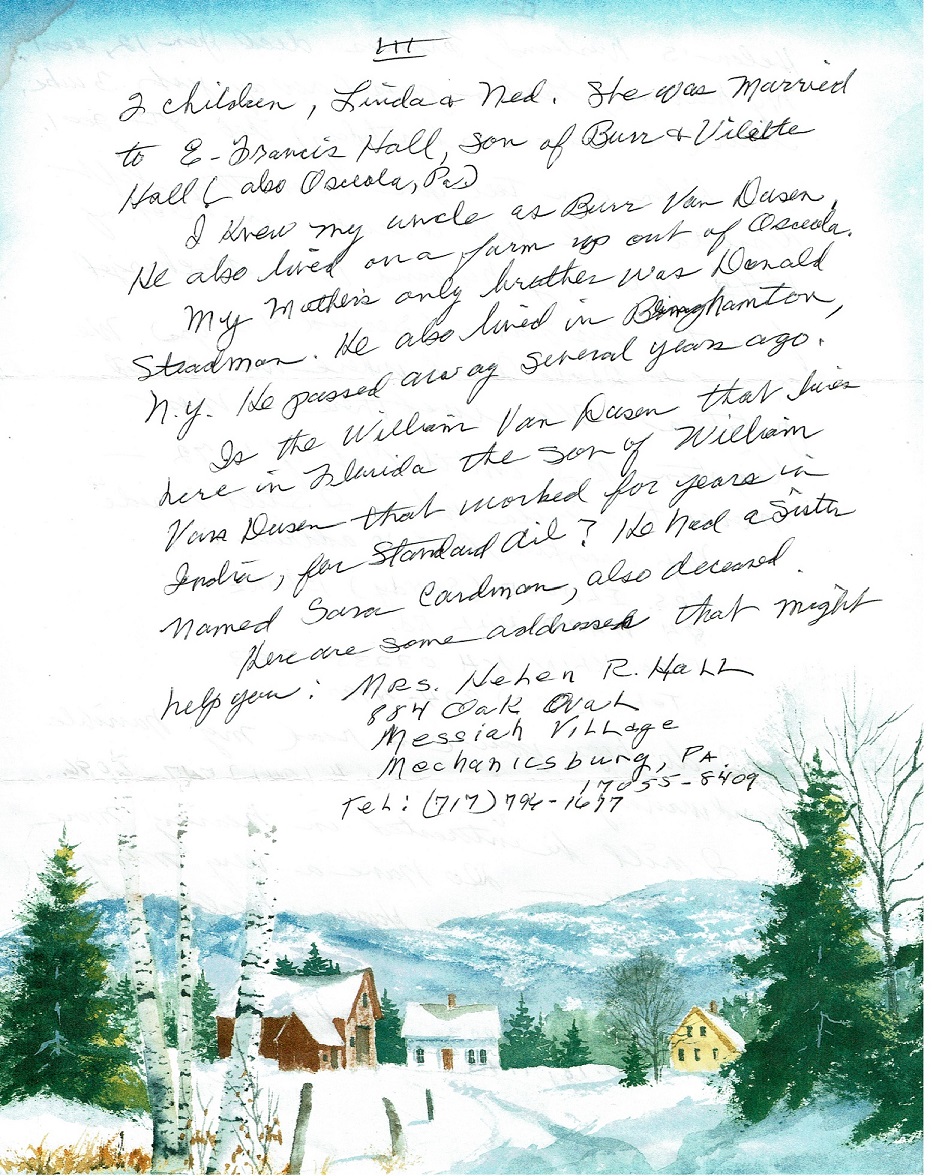 III
2 children, Linda & Ned. She was Married
to E-Francis Hall, son of Burr & Vilette
Hall (also Osceola, Pa.)
I knew my uncle as Burr Van Dusen.
He also lived on a farm up out of Osceola.
My Mother's only brother was Donald
Steadman. He also lived in Binghamton,
N.Y. He passed away several years ago.
Is the William Van Dusen that lives
here in Florida the son of William
Van Dusen that worked for years in
India, for Standard Oil? He had a Sister
named Sara Cardman, also deceased.
Here are some addresses that might
help you: Mrs. Helen R. Hall
884 Oak Oval
Messiah Village
Mechanicsburg, Pa.
17055-8409
Tel: (717) 796-1677